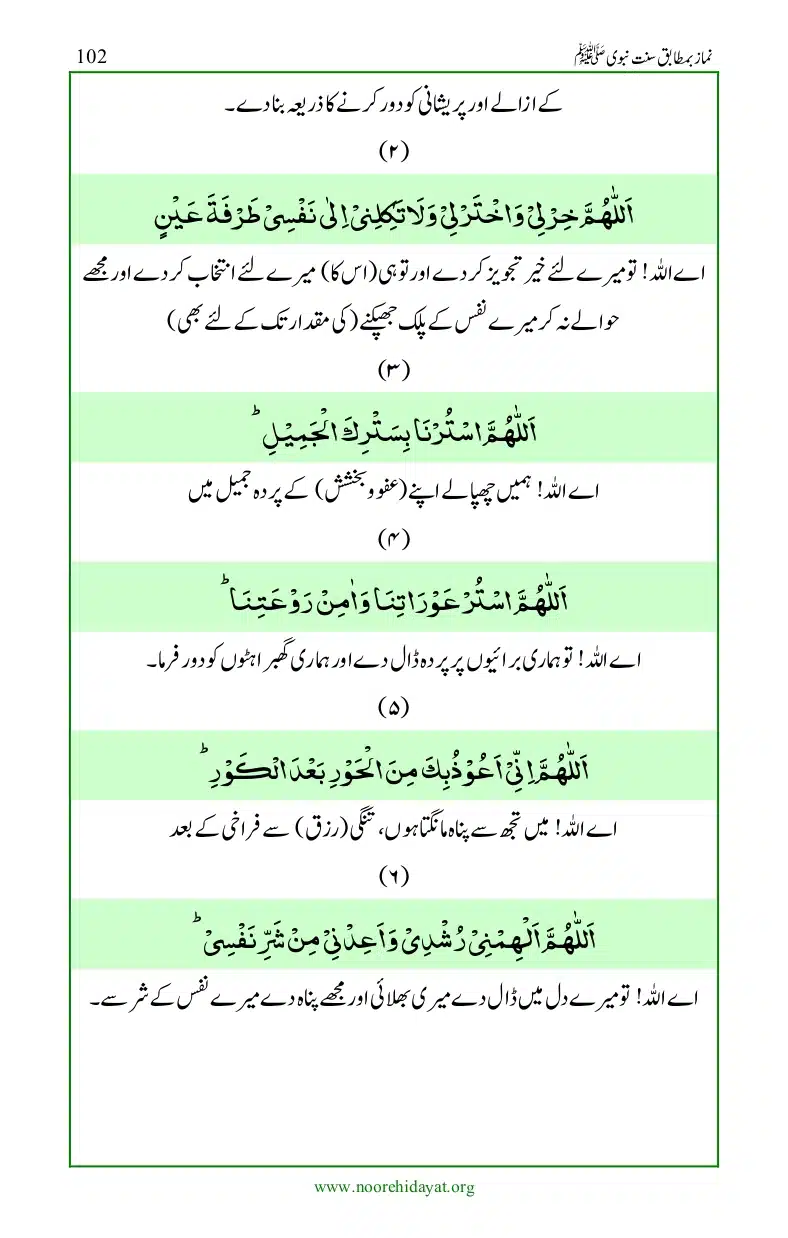 نماز بمطابق سنت نبوی ﷺ 102
کے ازالے اور پریشانی کو دور کرنے کا ذریعہ بنا دے۔
(۲)
اَللّٰهُمَّ خِرْلِیْ وَاخْتَرْلِیْ وَلَا تَكِلْنِیْ اِلٰی نَفْسِیْ طَرْفَةَ عَیْنٍ
اے اللہ! تو میرے لئے خیر تجویز کر دے اور تو ہی (اس کا) میرے لئے انتخاب کر دے اور مجھے
حوالے نہ کر میرے نفس کے پلک جھپکنے (کی مقدار تک کے لئے بھی)
(۳)
اَللّٰهُمَّ اسْتُرْنَا بِسَتْرِكَ الْجَمِیْلِ ؕ
اے اللہ! ہمیں چھپا لے اپنے (عفو و بخشش) کے پردہ جمیل میں
(۴)
اَللّٰهُمَّ اسْتُرْ عَوْرَاتِنَا وَاٰمِنْ رَوْعَتِنَا ؕ
اے اللہ! تو ہماری برائیوں پر پردہ ڈال دے اور ہماری گھبراہٹوں کو دور فرما۔
(۵)
اَللّٰهُمَّ اِنِّیْ اَعُوْذُبِكَ مِنَ الْحَوْرِ بَعْدَ الْكَوْرِ ؕ
اے اللہ! میں تجھ سے پناہ مانگتا ہوں، تنگی (رزق) سے فراخی کے بعد
(۶)
اَللّٰهُمَّ اَلْهِمْنِیْ رُشْدِیْ وَاَعِدْنِیْ مِنْ شَرِّ نَفْسِیْ ؕ
اے اللہ! تو میرے دل میں ڈال دے میری بھلائی اور مجھے پناہ دے میرے نفس کے شر سے۔
www.noorehidayat.org